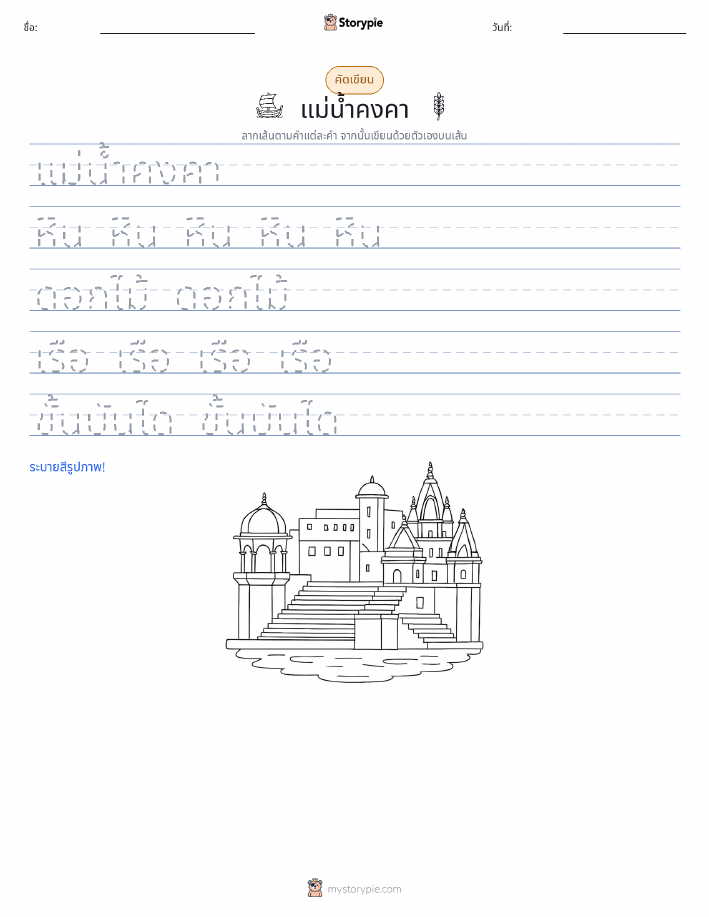 ชื่อ:
Storypie
วันที่:
คัดเขียน
แม่น้ำคงคา
ลากเส้นตามคำแต่ละคำ จากนั้นเขียนด้วยตัวเองบนเส้น
แม่น้ำคงคา
หิน หิน หิน หิน หิน
ดอกไม้ ดอกไม้
เรือ เรือ เรือ เรือ
ขั้นบันได ขั้นบันได
ระบายสีรูปภาพ!
mystorypie.com